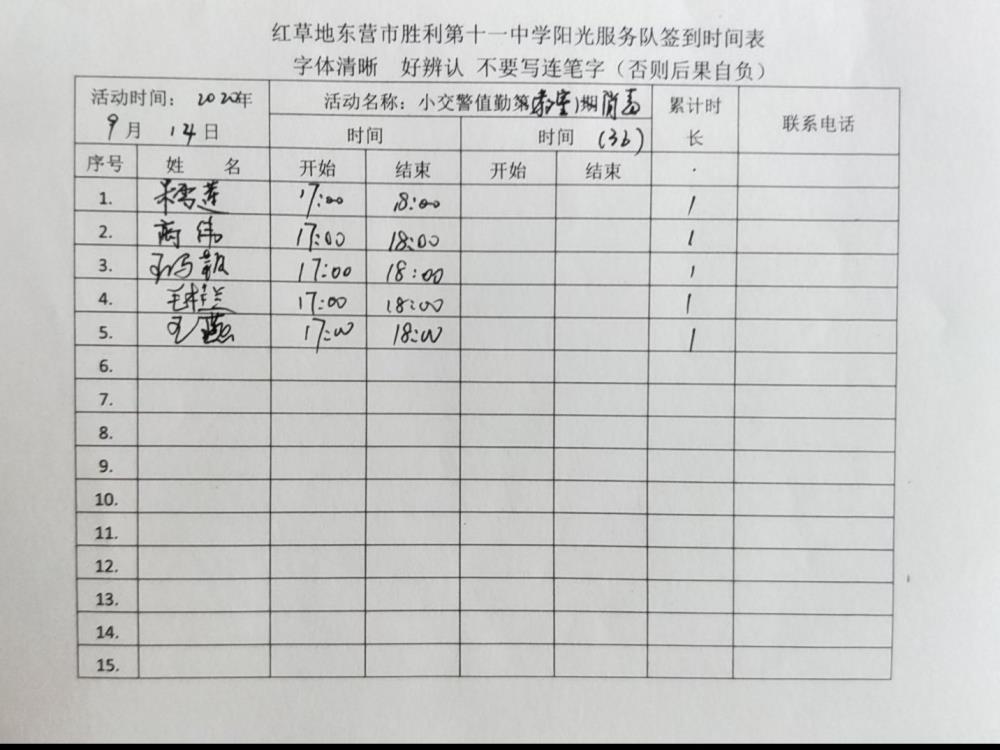 红草地东营市胜利第十一中学阳光服务队签到时间表
字体清晰 好辨认 不要写连笔字（否则后果自负）
活动时间： 2020年 活动名称：小交警值勤第教室1期消毒 累计时长 联系电话
9月 14日 时间 时间 (36)
序号 姓 名 开始 结束 开始 结束
1. 17:00 18:00 1
2. 商伟 17:00 18:00 1
3. 17:00 18:00 1
4. 毛桂兰 17:00 18:00 1
5. 王燕 17:00 18:00 1
6.
7.
8.
9.
10.
11.
12.
13.
14.
15.